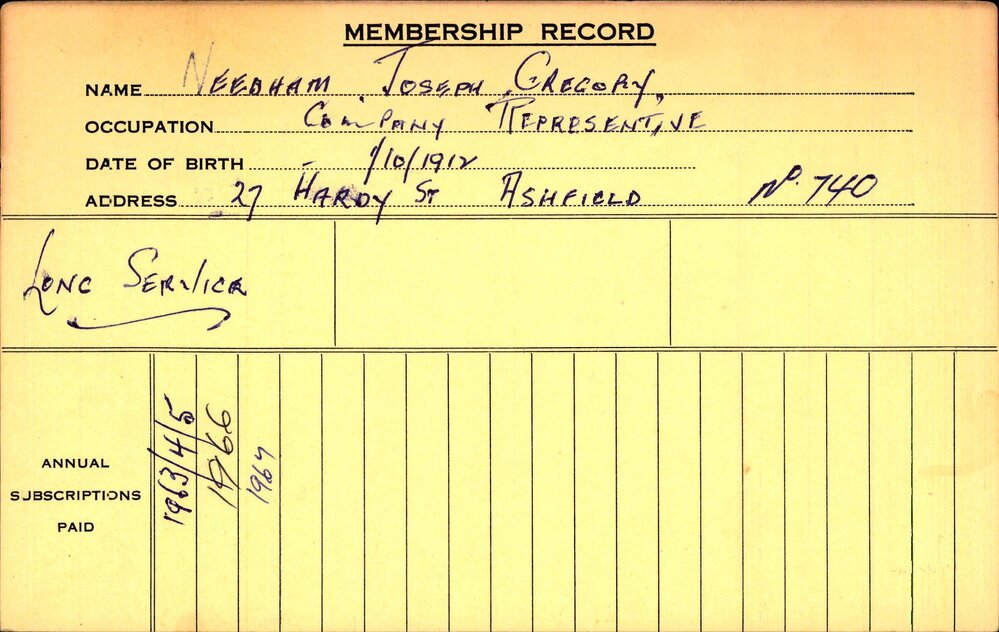 MEMBERSHIP RECORD
NAME NEEDHAM, JOSEPH GREGORY,
OCCUPATION COMPANY REPRESENTIVE
DATE OF BIRTH - 1/10/1912
ADDRESS 27 HARDY ST ASHFIELD No. 740
LONG SERVICE
ANNUAL SUBSCRIPTIONS PAID
1963/4/5
1966
1967